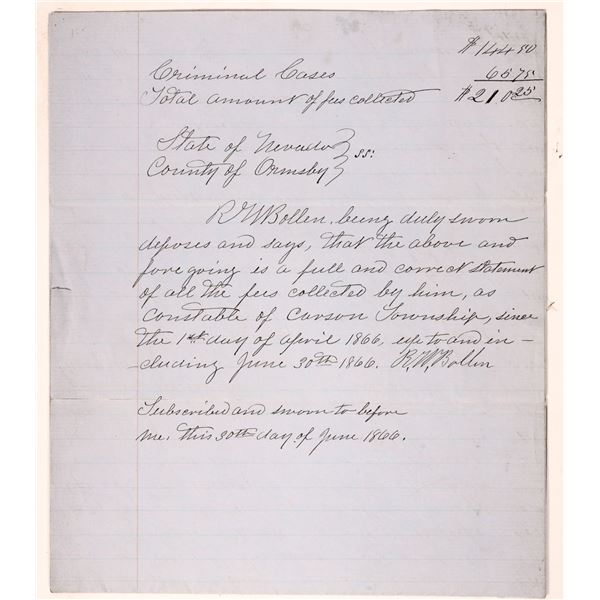 $144 50
Criminal Cases 65 75
Total amount of fees collected $210 25
State of Nevada } ss:
County of Ormsby
R W Bollen, being duly sworn
deposes and says, that the above and
foregoing is a full and correct statement
of all the fees collected by him, as
constable of Carson Township, since
the 1st day of April 1866, up to and in-
-cluding June 30th 1866. R. W. Bollen
Subscribed and sworn to before
me, this 30th day of June 1866.